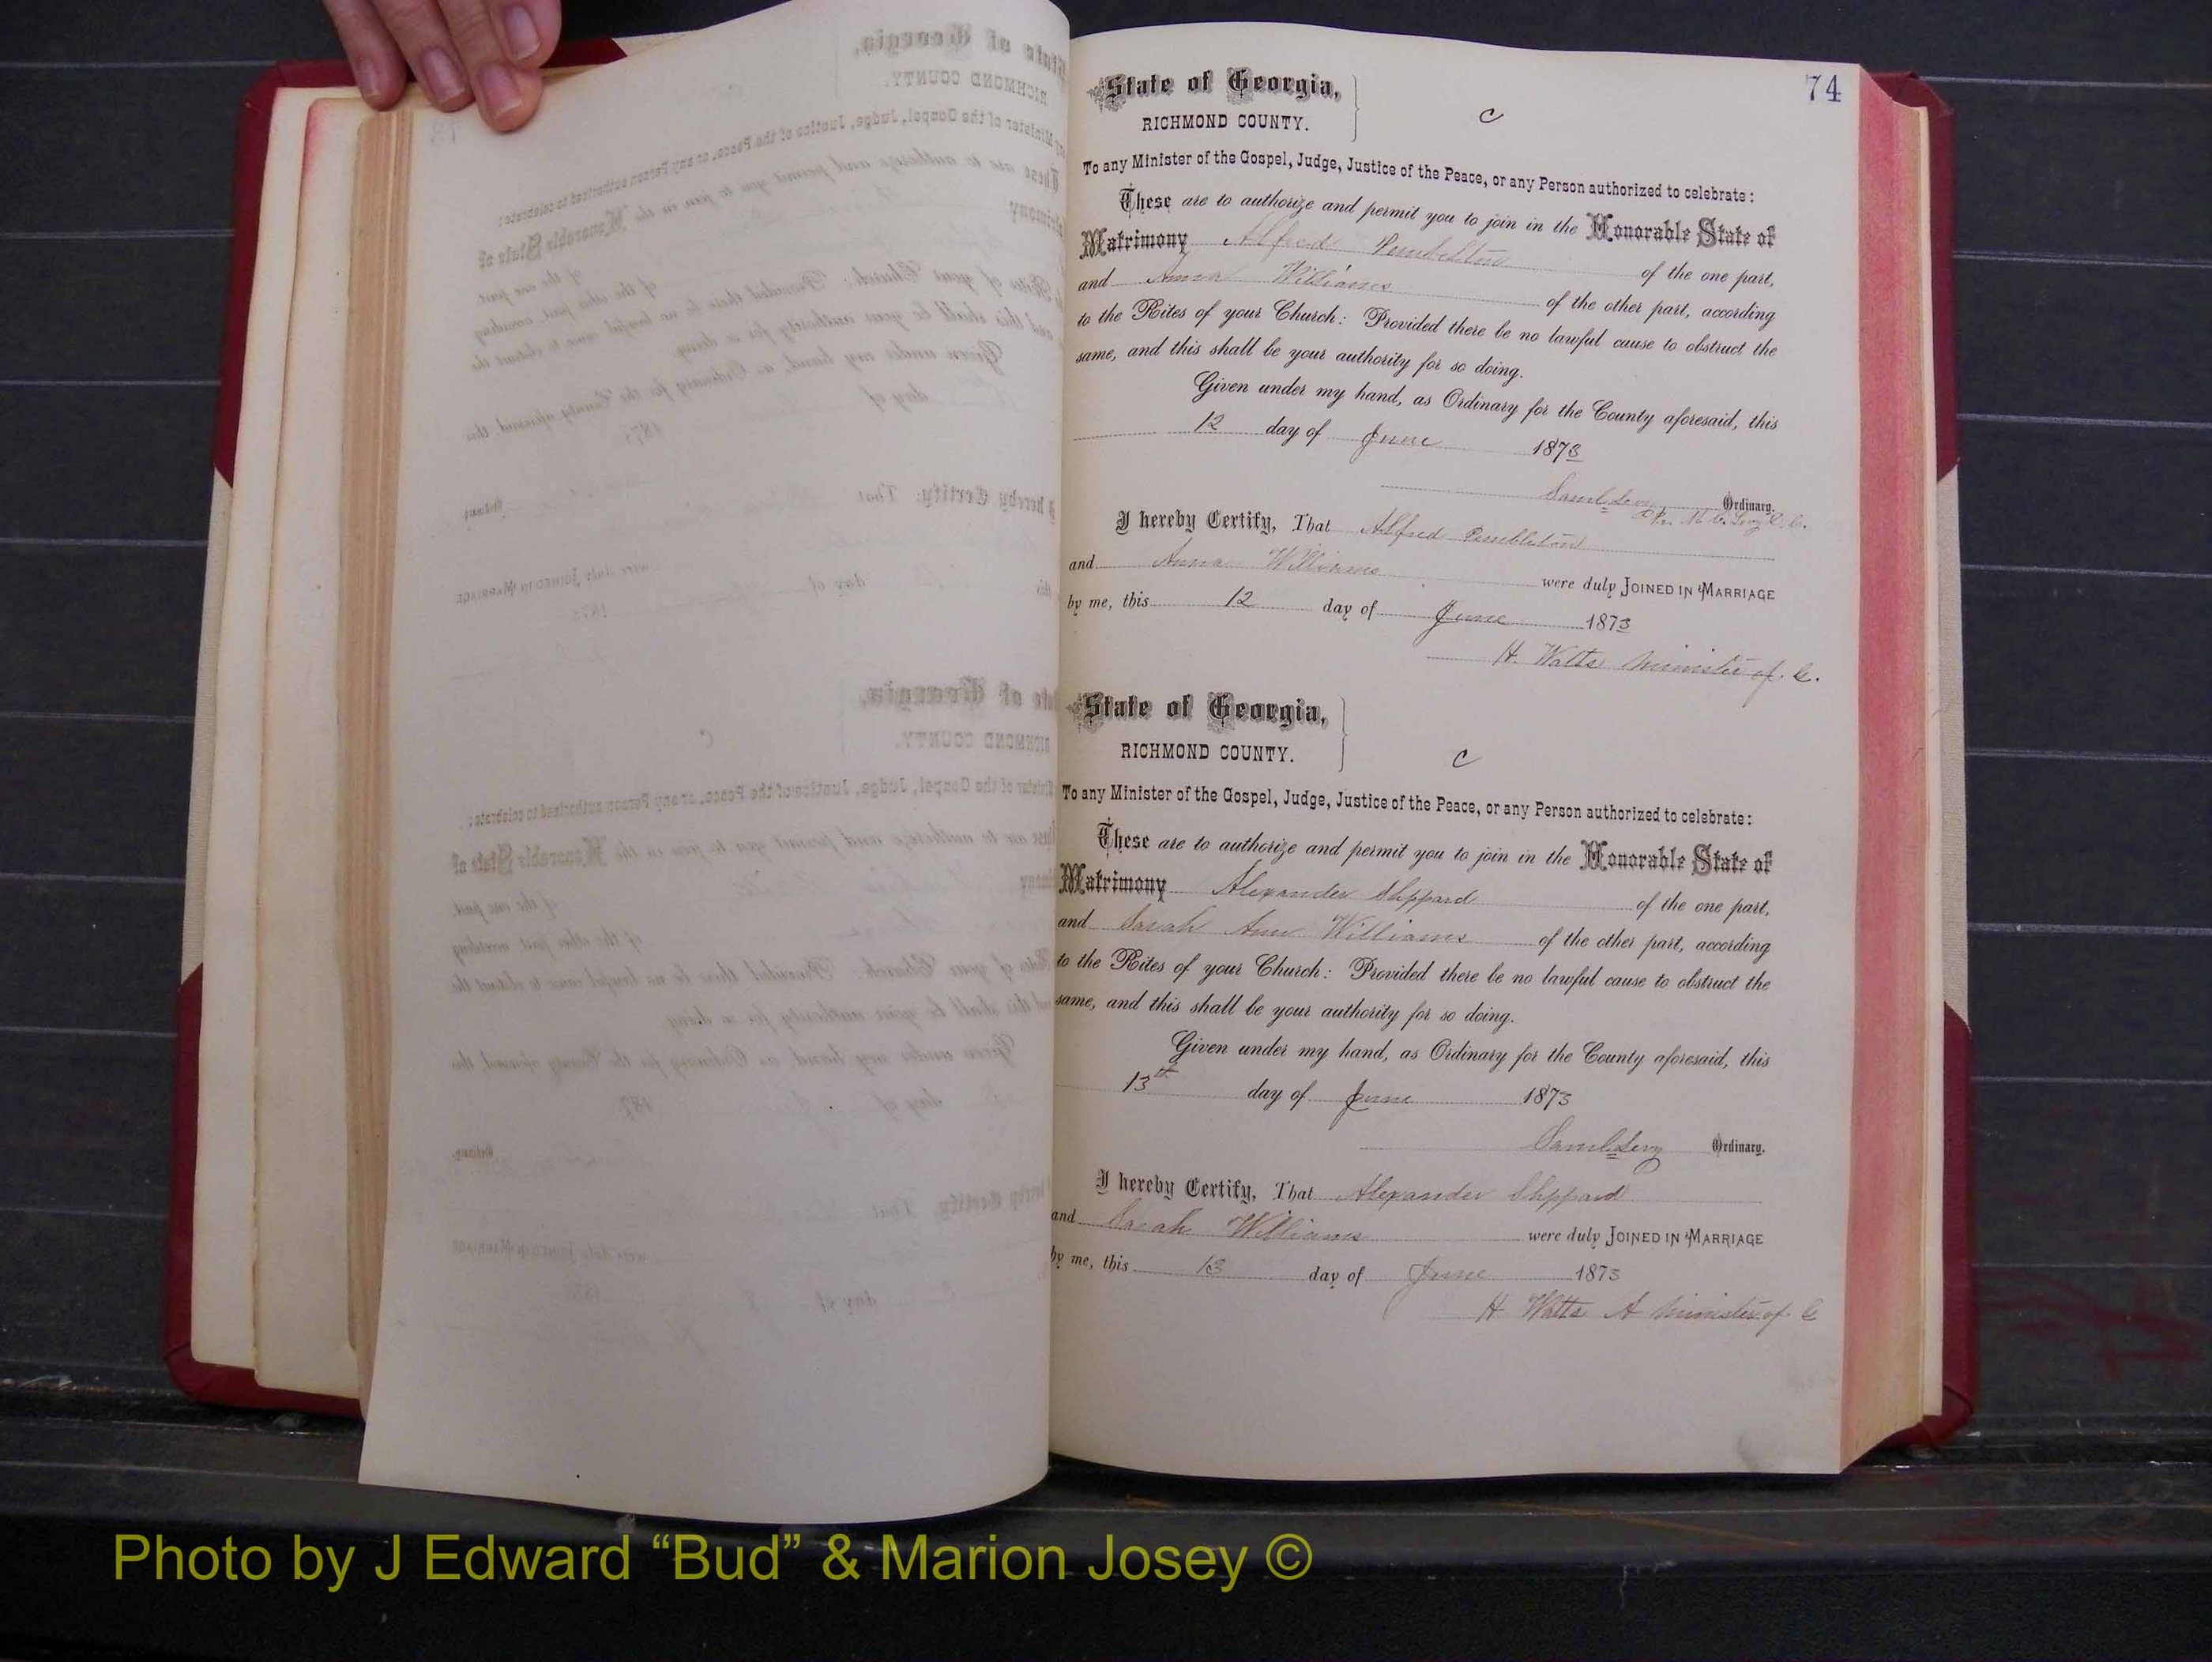 74
State of Georgia,
RICHMOND COUNTY.
C
To any Minister of the Gospel, Judge, Justice of the Peace, or any Person authorized to celebrate:
These are to authorize and permit you to join in the Honorable State of
Matrimony Alfred Pembleton of the one part,
and Anna Williams of the other part, according
to the Rites of your Church: Provided there be no lawful cause to obstruct the
same, and this shall be your authority for so doing.
Given under my hand, as Ordinary for the County aforesaid, this
12 day of June 1873
Saml Levy Ordinary.
I hereby Certify, That Alfred Pembleton
and Anna Williams were duly JOINED IN MARRIAGE
by me, this 12 day of June 1873
H. Watts Minister of G.
State of Georgia,
RICHMOND COUNTY.
C
To any Minister of the Gospel, Judge, Justice of the Peace, or any Person authorized to celebrate:
These are to authorize and permit you to join in the Honorable State of
Matrimony Alexander Sheppard of the one part,
and Sarah Ann Williams of the other part, according
to the Rites of your Church: Provided there be no lawful cause to obstruct the
same, and this shall be your authority for so doing.
Given under my hand, as Ordinary for the County aforesaid, this
13th day of June 1873
Saml Levy Ordinary.
I hereby Certify, That Alexander Sheppard
and Sarah Williams were duly JOINED IN MARRIAGE
by me, this 13 day of June 1873
H Watts A Minister of G
Photo by J Edward “Bud” & Marion Josey ©